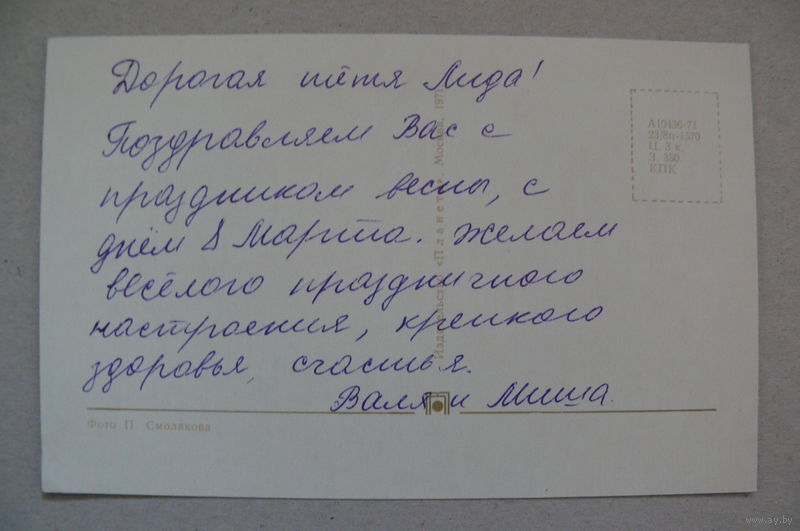 Дорогая тётя Лида!
Поздравляем Вас с
праздником весны, с
днём 8 Марта. Желаем
весёлого праздничного
настроения, крепкого
здоровья, счастья.
Валя и Миша.
Издательство «Планета». Москва. 1971
А10436-71
23/8п-1570
Ц. 3 к.
З. 330.
КПК
Фото П. Смолякова
www.ay.by